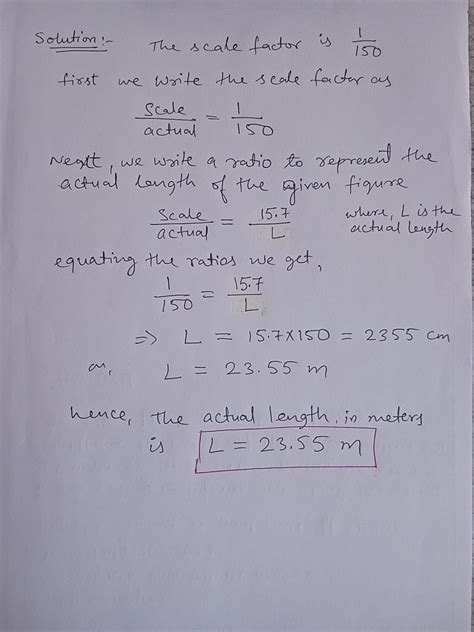 Solution:- The scale factor is 1/150
first we write the scale factor as
scale/actual = 1/150
Next, we write a ratio to represent the
actual length of the given figure
scale/actual = 15.7/L where, L is the
actual length
equating the ratios we get,
1/150 = 15.7/L
=> L = 15.7×150 = 2355 cm
or, L = 23.55 m
hence, The actual length, in meters
is L = 23.55 m